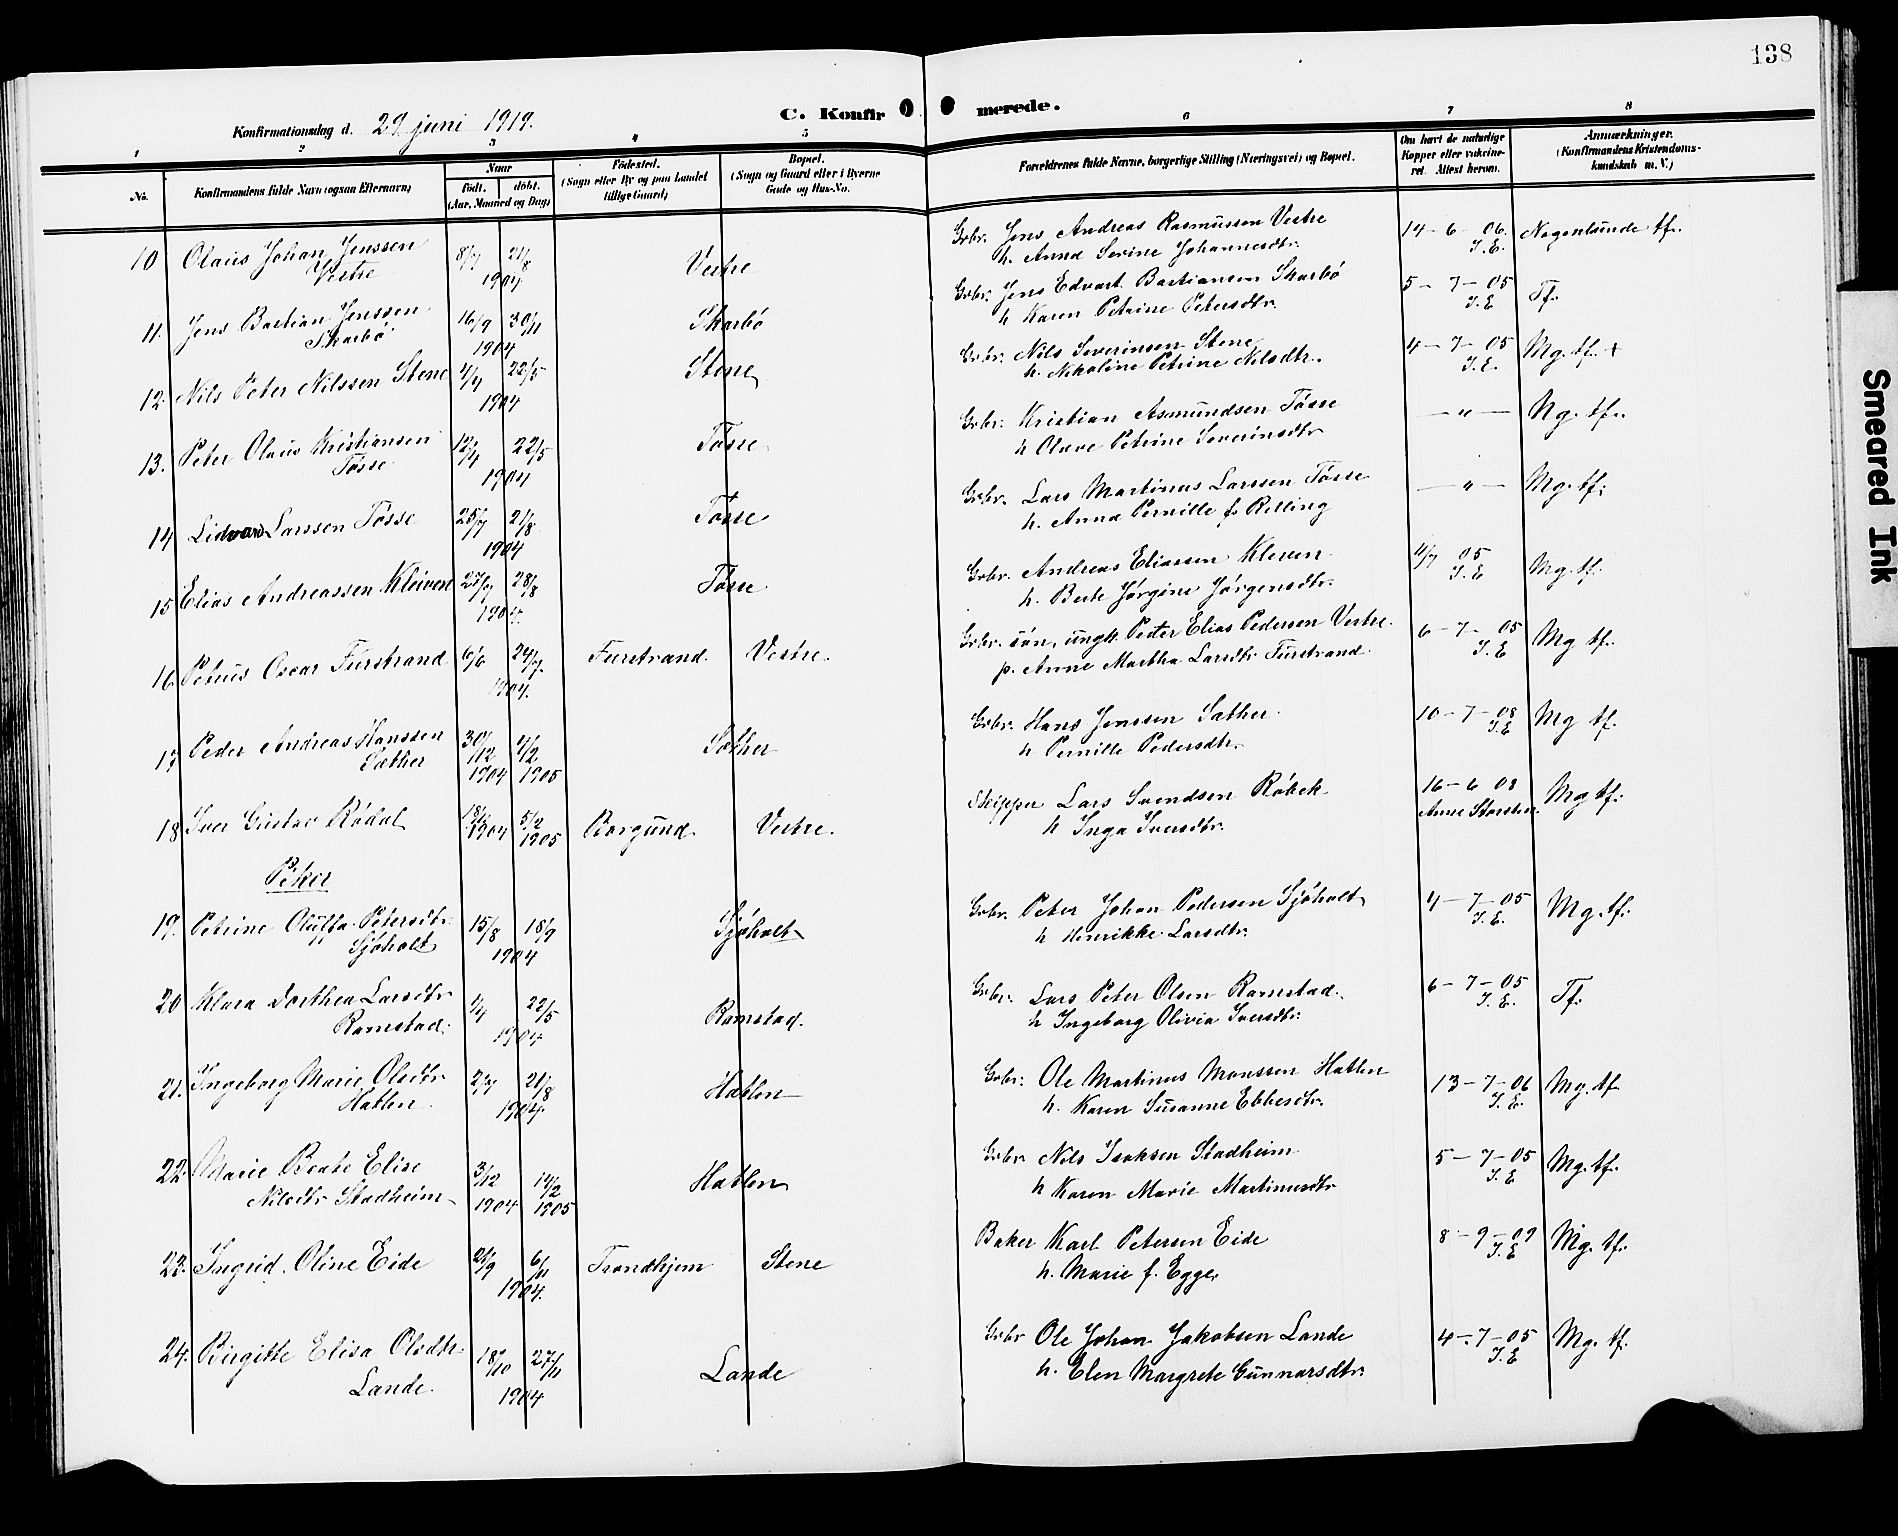 138
C. Konfirmerede.
Konfirmationsdag d. 29. juni 1919.
1 2 3 4 5 6 7 8
No.
Konfirmandens fulde Navn (ogsaa Efternavn)
Naar
født. døbt.
(Aar, Maaned og Dag)
Fødested.
(Sogn eller By og paa Landet
tillige Gaard)
Bopæl.
(Sogn og Gaard eller i Byerne
Gade og Hus-No.
Forældrenes fulde Navne, borgerlige Stilling (Næringsvei) og Bopæl.
Om havt de naturlige
Kopper eller vakcine-
ret. Attest herom.
Anmærkninger.
(Konfirmandens Kristendoms-
kundskab m. V.)
10 Olaus Johan Jenssen 8/7 21/8 Vestre Grbr. Jens Andreas Rasmussen Vestre 14-6-06. Nogenlunde tf.
Vestre 1904 h. Anna Serine Johannesdtr. I.E.
11. Jens Bastian Jenssen 16/9 30/11 Skarbö Grbr. Jens Edvart Bastiansen Skarbö 5-7-05 Tf.
Skarbö 1904 h Karen Petrine Petersdtr. I.E
12. Nils Peter Nilssen Stene 4/4 22/5 Stene Grbr. Nils Severinsen Stene 4-7-05 Mg. tf. +
1904 h. Nikoline Petrine Nilsdtr. I.E.
13. Peter Olaus Kristiansen 12/4 22/5 Tösse Grbr. Kristian Asmundsen Tösse — " — Ng. tf.
Tösse 1904 h Olave Petrine Severinsdtr
14 Lidvard Larssen Tösse 25/7 21/8 Tösse Grbr. Lars Martinus Larssen Tösse — " — Mg. tf.
1904 h. Anna Pernille f. Relling
15 Elias Andreassen Kleiven 27/7 28/8 Tösse Grbr. Andreas Eliassen Kleven 11/7 05 Mg. tf.
1904. h. Berte Jörgine Jörgensdtr. I.E
16 Petrus Oscar Furstrand 6/6 24/7. Furstrand. Vestre. Grbr. sön, ungk. Peder Elias Pedersen Vestre. 6-7-05 Mg tf.
1904. p. Anne Martha Larsdtr Furstrand I.E
17 Peder Andreas Hanssen 30/12 4/2 Sæther Grbr. Hans Jenssen Sæther. 10-7-08 Mg tf.
Sæther 1904 1905 h Pernille Pedersdtr. I.E
18 Iver Gustav Rödal 18/12 1904 5/2 1905 Borgund. Vestre. Skipper Lars Svendsen Röbek 16-6 08 Mg tf.
h Inga Iversdtr. Anne Storsten
Piker
19. Petrine Oluffa Petersdtr. 15/8 18/9 Sjøholt Grbr. Peter Johan Pedersen Sjøholt 4-7-05 Mg. tf.
Sjøholt 1904 h Henrikke Larsdtr. I.E.
20 Klara Dorthea Larsdtr 4/4 22/5 Ramstad. Grbr. Lars Peter Olsen Ramstad. 6-7-05 Tf.
Ramstad. 1904 h Ingeborg Olivia Iversdtr. I.E.
21. Ingeborg Marie Olsdtr 2/7 21/8 Hatlen Grbr. Ole Martinus Monssen Hatlen 13-7-06 Mg. tf
Hatlen 1904. h. Karen Susanne Ebbesdtr. I.E.
22. Marie Beate Elise 3/12 19/2 Hatlen Grbr Nils Isaksen Stadheim 5-7-05 Mg. tf.
Nilsdtr Stadheim 1904 1905 h Karen Marie Martinusdtr I.E
23. Ingrid Oline Eide 6/11 Trondhjem Stene Baker Karl Petersen Eide 8-9-09 Mg. tf.
1904. h. Marie f. Egge I.E
24. Birgitte Elisa Olsdtr. 18/10 27/11 Lande Grbr Ole Johan Jakobsen Lande 4-7-05 Mg. tf.
Lande. 1904 h. Elen Margrete Gunnarsdtr. I.E
Smeared Ink